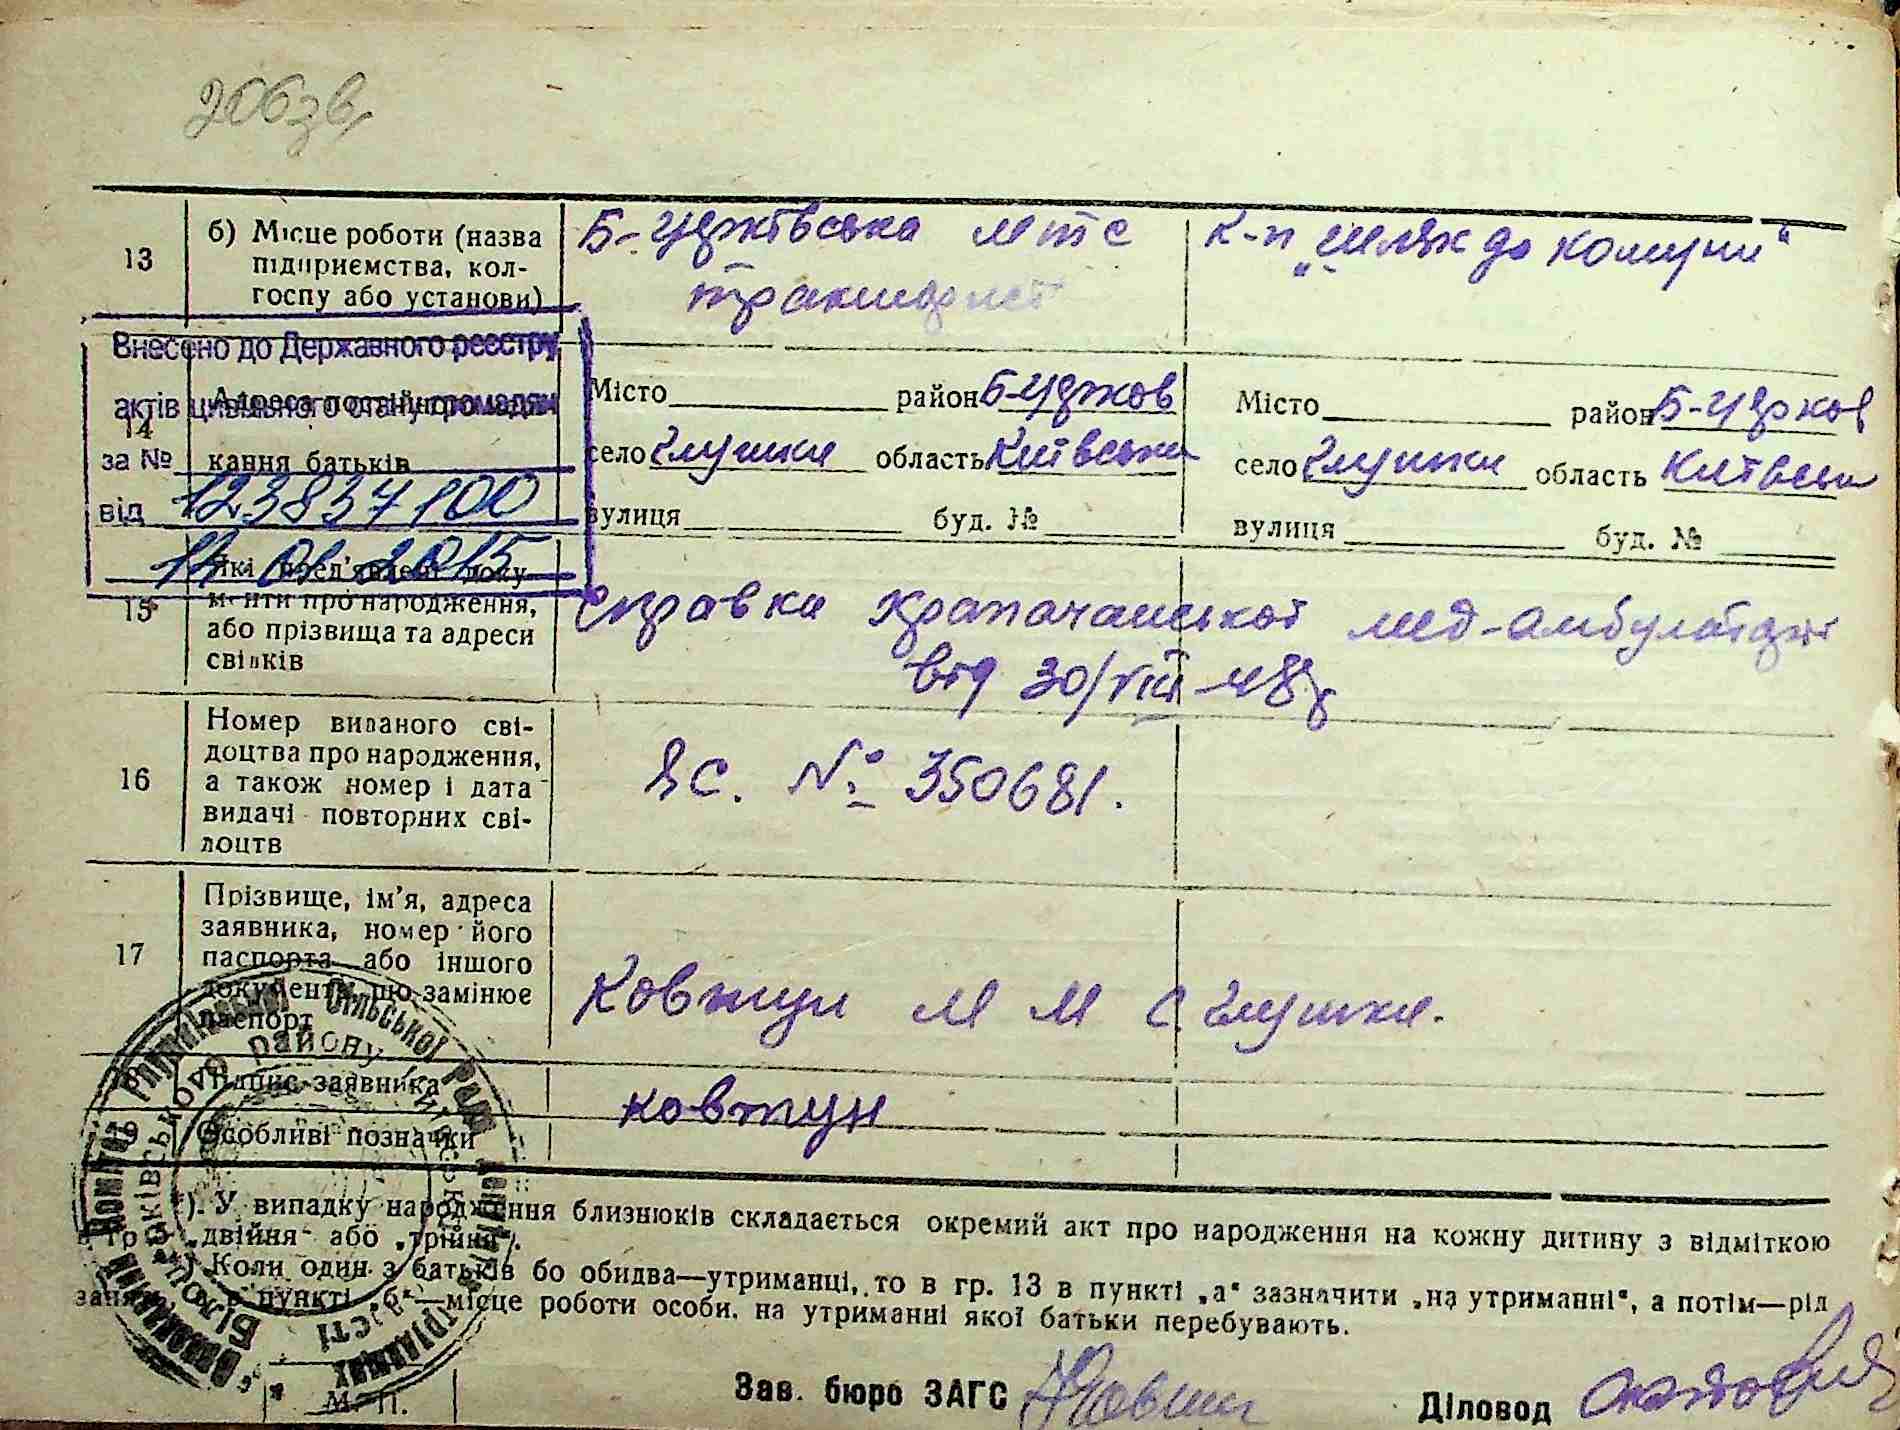 206зв.
13
б) Місце роботи (назва
підприємства, кол-
госпу або установи)
Б-Церківська мтс
тракторист
К-п „Шлях до комуни“
Внесено до Державного реєстру
актів цивільного стану громадян
за №
від 123837100
14 01 2015
14
Адреса постійного
кання батьків
Місто район Б-Церков
село Глушки область Київська
вулиця буд. №
Місто район Б-Церков
село Глушки область Київська
вулиця буд. №
15
Які пред'явлені доку-
менти про народження,
або прізвища та адреси
свідків
Справка мед-амбулаторії
від 30/VIII 48 р
16
Номер виданого сві-
доцтва про народження,
а також номер і дата
видачі повторних сві-
доцтв
ЯС. № 350681.
17
Прізвище, ім'я, адреса
заявника, номер його
паспорта або іншого
документа, що замінює
паспорт
Ковтун М М с. Глушки.
18
Підпис заявника
Ковтун
19
Особливі позначки
). У випадку народження близнюків складається окремий акт про народження на кожну дитину з відміткою
„двійня“ або „трійня“.
) Коли один з батьків бо обидва—утриманці, то в гр. 13 в пункті „а“ зазначити „на утриманні“, а потім—рід
в пункті „б“—місце роботи особи, на утриманні якої батьки перебувають.
Виконавчий Комітет Сільської Ради Депутатів Трудящих
Білоцерківського району Київської області
М. П.
Зав. бюро ЗАГС
Діловод